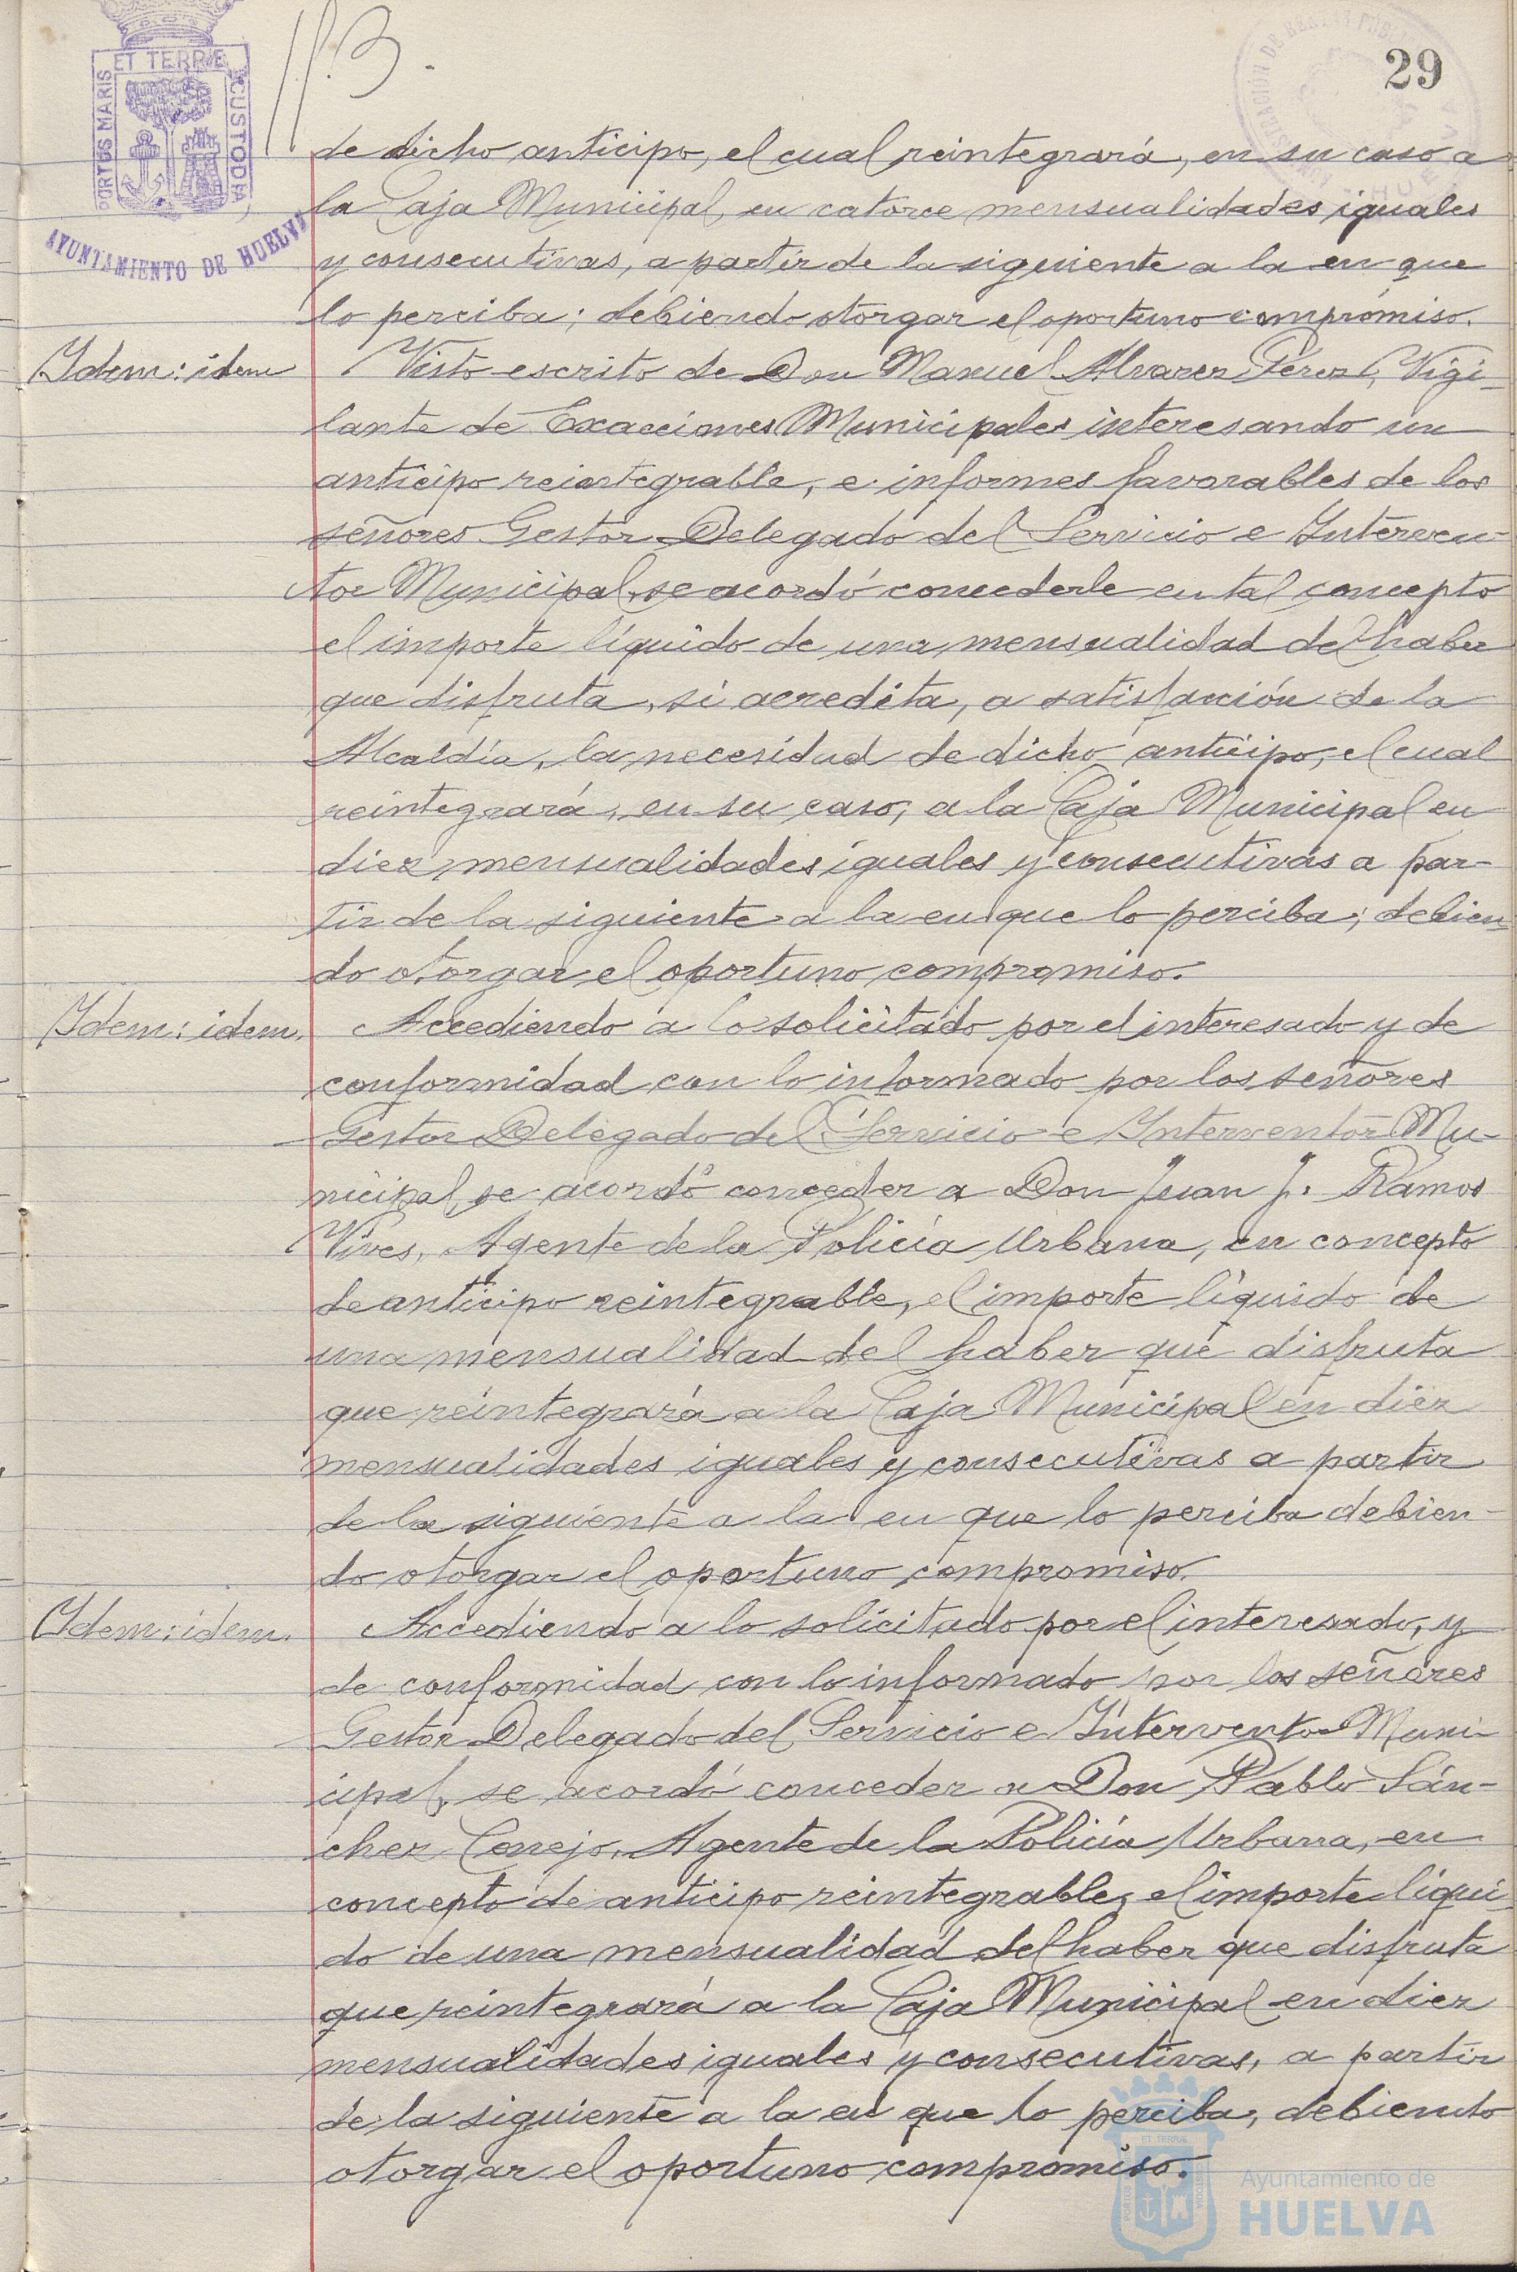 29
ET TERRÆ
PORTUS MARIS
CUSTODIA
AYUNTAMIENTO DE HUELVA
de dicho anticipo, el cual reintegrará, en su caso a
la Caja Municipal, en catorce mensualidades iguales
y consecutivas, a partir de la siguiente a la en que
lo perciba; debiendo otorgar el oportuno compromiso.
Idem: idem Visto escrito de Don Manuel Alvarez Pérez, Vigi-
lante de Exacciones Municipales interesando un
anticipo reintegrable, e informes favorables de los
señores Gestor Delegado del Servicio e Interven-
tor Municipal, se acordó concederle en tal concepto
el importe líquido de una mensualidad del haber
que disfruta, si acredita, a satisfacción de la
Alcaldía, la necesidad de dicho anticipo, el cual
reintegrará, en su caso, a la Caja Municipal en
diez mensualidades iguales y consecutivas a par-
tir de la siguiente a la en que lo perciba; debien-
do otorgar el oportuno compromiso.
Idem: idem. Accediendo a lo solicitado por el interesado y de
conformidad con lo informado por los señores
Gestor Delegado del Servicio e Interventor Mu-
nicipal, se acordó conceder a Don Juan J. Ramos
Vives, Agente de la Policía Urbana, en concepto
de anticipo reintegrable, el importe líquido de
una mensualidad del haber que disfruta
que reintegrará a la Caja Municipal en diez
mensualidades iguales y consecutivas a partir
de la siguiente a la en que lo perciba debien-
do otorgar el oportuno compromiso.
Idem: idem. Accediendo a lo solicitado por el interesado, y
de conformidad con lo informado por los señores
Gestor Delegado del Servicio e Interventor Muni-
cipal, se acordó conceder a Don Pablo Sán-
chez Conejo, Agente de la Policía Urbana, en
concepto de anticipo reintegrable, el importe líqui-
do de una mensualidad del haber que disfruta
que reintegrará a la Caja Municipal en diez
mensualidades iguales y consecutivas, a partir
de la siguiente a la en que lo perciba, debiendo
otorgar el oportuno compromiso.
Ayuntamiento de
HUELVA